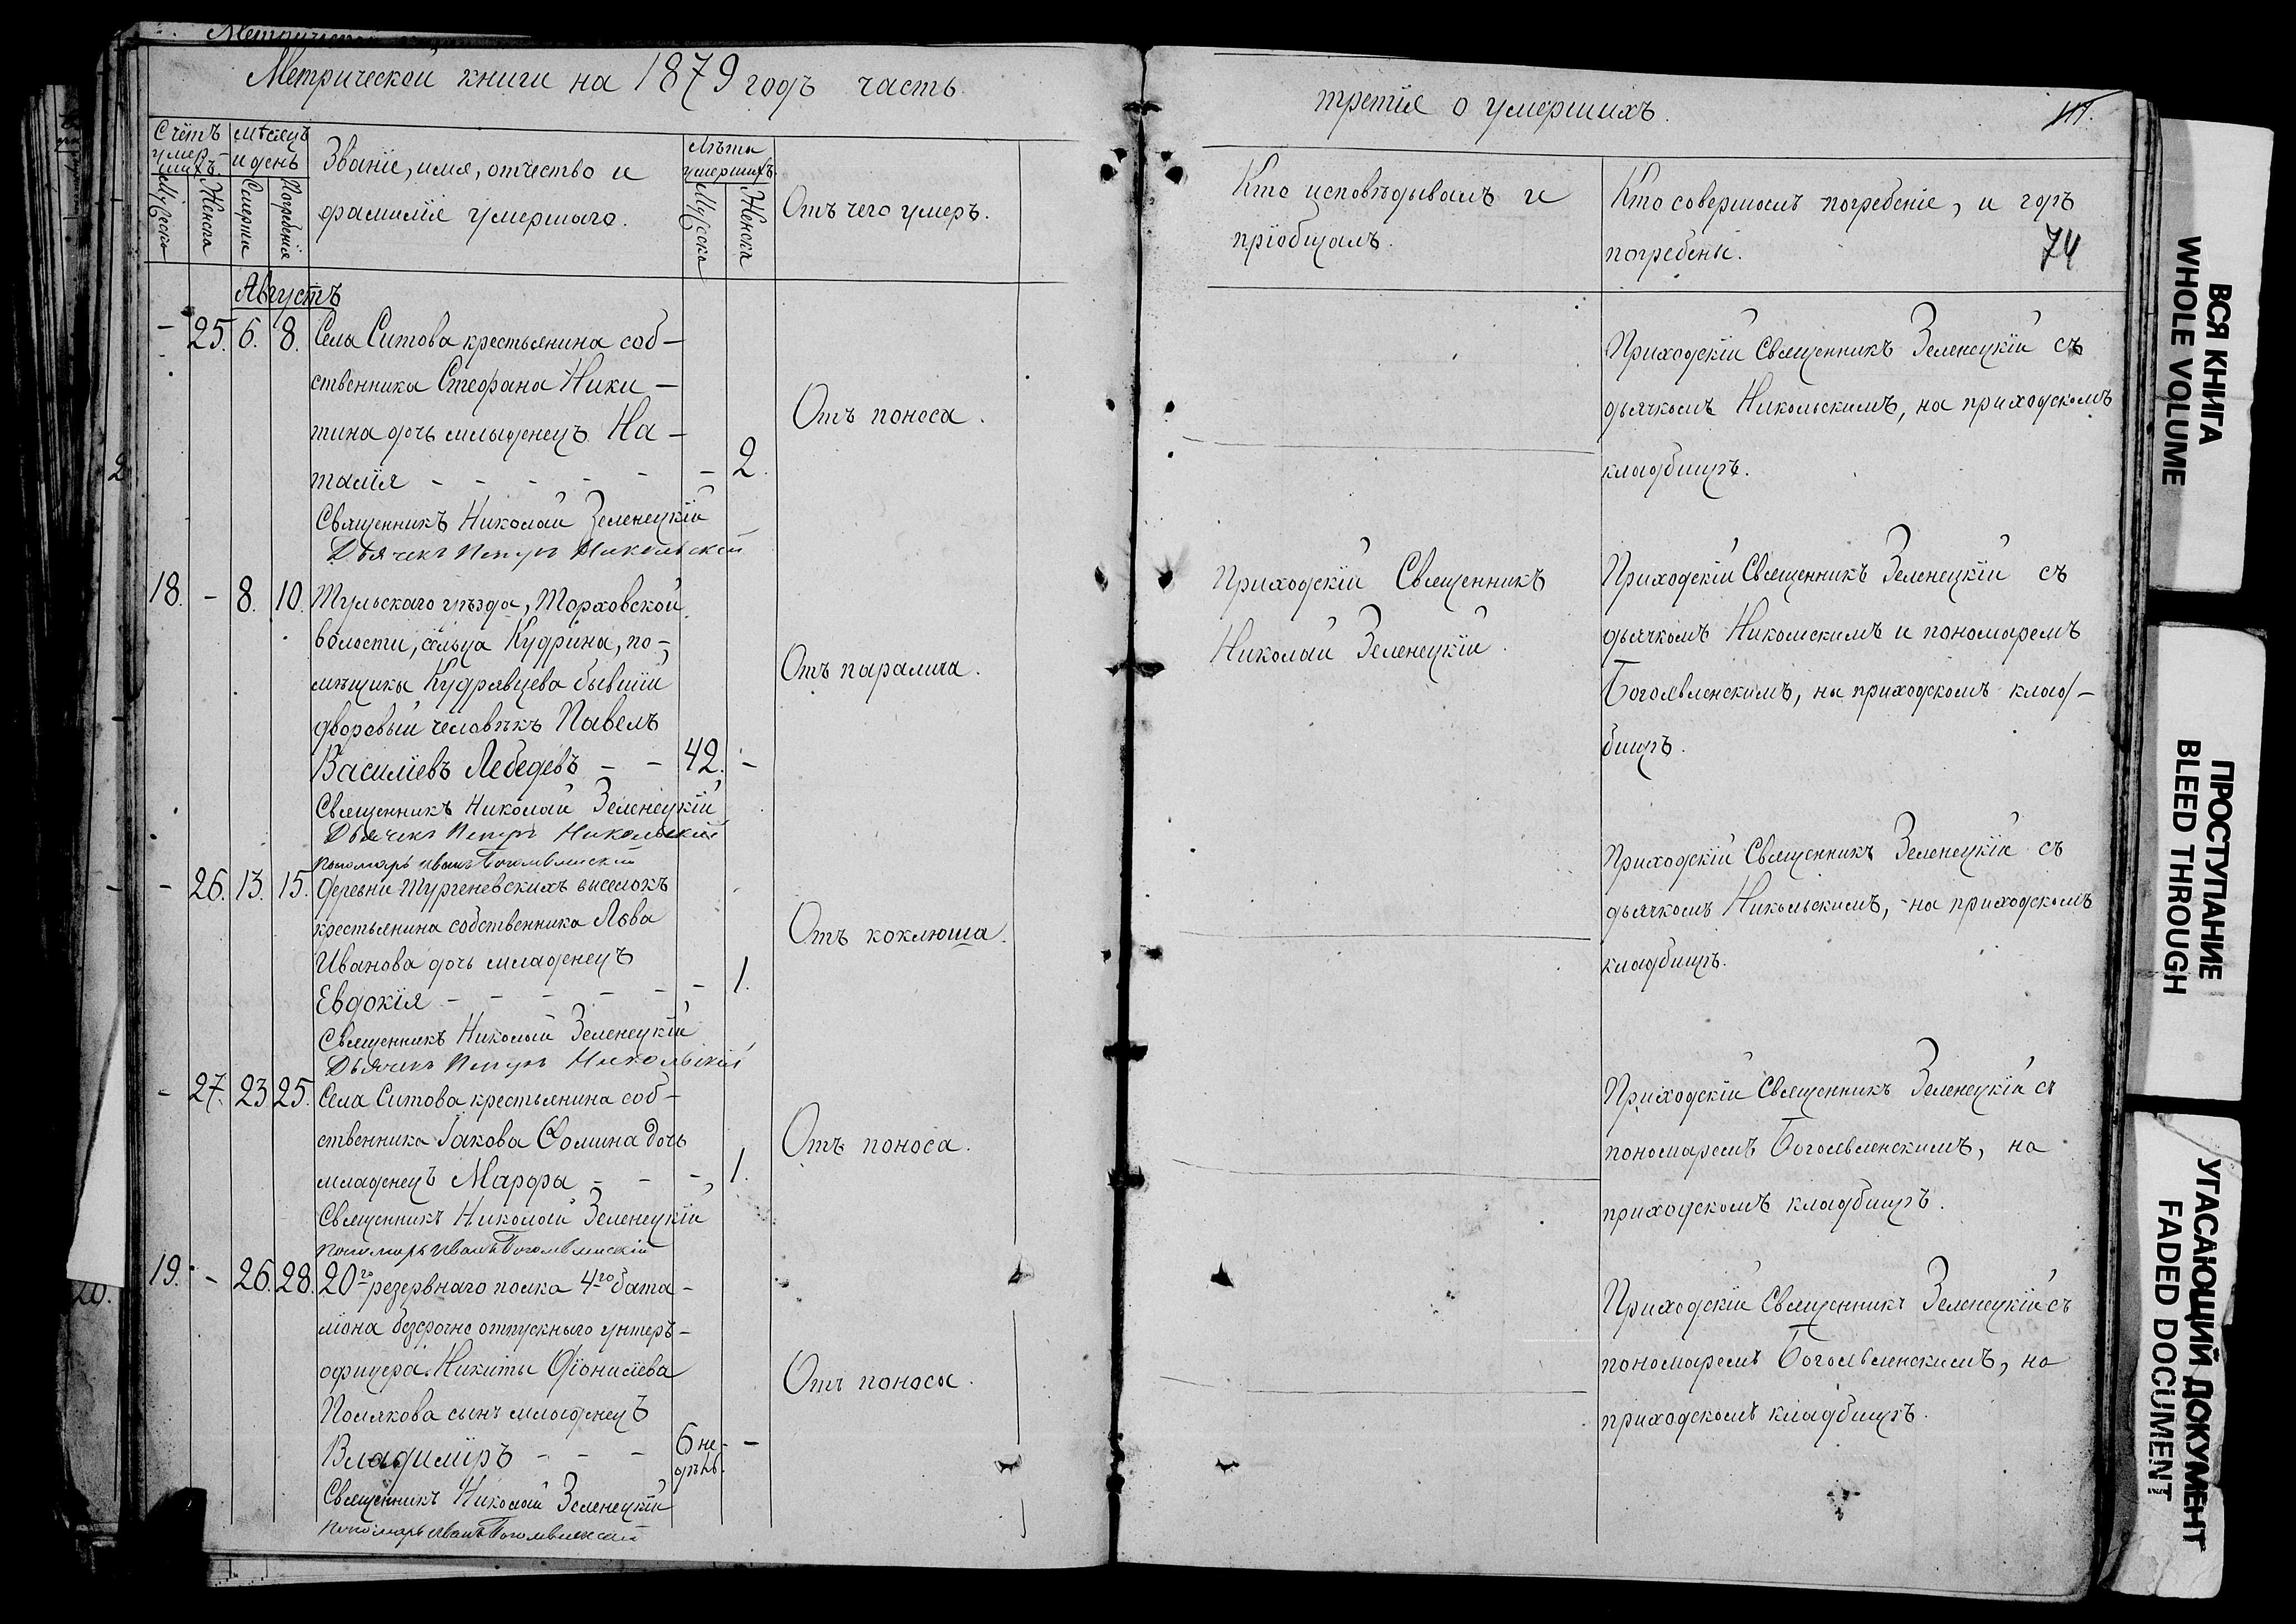 Метрической книги на 1879 годъ часть
третія о умершихъ.
74
Счётъ умер-шихъ.
Мужска
Женска
мѣсяцъ и день
Смерти
Погребенія
Званіе, имя, отчество и
фамилія умершаго.
Лѣта умершихъ.
Мужска
Женска
Отъ чего умеръ.
Кто исповѣдывалъ и
пріобщалъ.
Кто совершалъ погребеніе, и гдѣ
погребены.
Августъ
- 25. 6. 8. Села Ситова крестьянина соб-
ственника Стефана Ники-
тина дочь младенецъ На-
талія - - - - - - 2.
Отъ поноса.
Священникъ Николай Зеленецкій
Дьячекъ Петръ Никольскій
Приходскій Священникъ Зеленецкій съ
дьячкомъ Никольскимъ, на приходскомъ
кладбищѣ.
18. - 8. 10. Тульскаго уѣзда, Торховской
волости, сельца Кудрина, по-
мѣщика Кудрявцева бывшій
дворовый человѣкъ Павелъ
Василіевъ Лебедевъ - - 42. -
Отъ паралича.
Священникъ Николай Зеленецкій
Дьячекъ Петръ Никольскій
Пономарь Иванъ Богоявленскій
Приходскій Священникъ
Николай Зеленецкій.
Приходскій Священникъ Зеленецкій съ
дьячкомъ Никольскимъ и пономаремъ
Богоявленскимъ, на приходскомъ клад-
бищѣ.
- 26. 13. 15. Деревни Тургеневскихъ выселокъ
крестьянина собственника Льва
Иванова дочь младенецъ
Евдокія - - - - - - 1.
Отъ коклюша.
Священникъ Николай Зеленецкій
Дьячекъ Петръ Никольскій
Приходскій Священникъ Зеленецкій съ
дьячкомъ Никольскимъ, на приходскомъ
кладбищѣ.
- 27. 23. 25. Села Ситова крестьянина соб-
ственника Іакова Ѳомина дочь
младенецъ Марфа - - - 1.
Отъ поноса.
Священникъ Николай Зеленецкій
Пономарь Иванъ Богоявленскій
Приходскій Священникъ Зеленецкій съ
пономаремъ Богоявленскимъ, на
приходскомъ кладбищѣ.
19. - 26. 28. 20го резервнаго полка 4го бата-
ліона безсрочно отпускнаго унтеръ-
офицера Никиты Діонисіева
Полякова сынъ младенецъ
Владиміръ - - - 6 не-дѣль. -
Отъ поноса.
Священникъ Николай Зеленецкій
Пономарь Иванъ Богоявленскій
Приходскій Священникъ Зеленецкій съ
пономаремъ Богоявленскимъ, на
приходскомъ кладбищѣ.
ВСЯ КНИГА
WHOLE VOLUME
ПРОСТУПАНИЕ
BLEED THROUGH
УГАСАЮЩИЙ ДОКУМЕНТ
FADED DOCUMENT